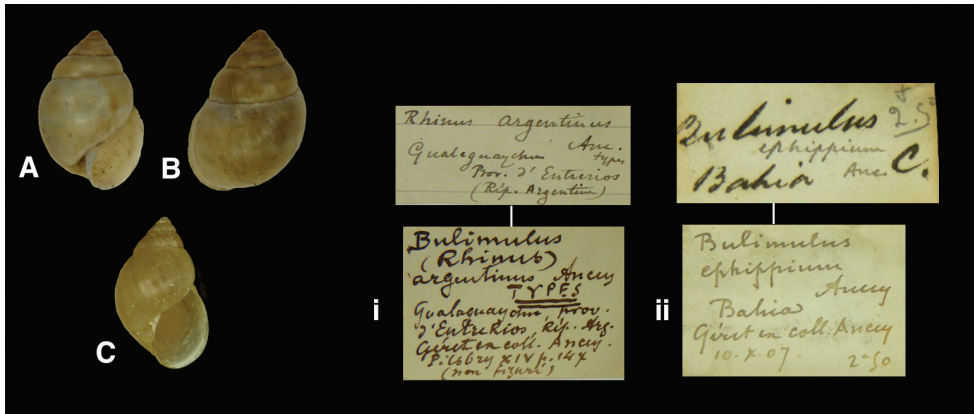 A
B
C
i
ii
Rhinus argentinus
Anc.
types
Gualeguaychu
Prov. d'Entrerios
(Rép. Argentine)
Bulimulus
(Rhinus)
argentinus Ancey
TYPES
Gualaguaychu, prov.
d'EntreRios, Rép. Arg.
Géret en coll. Ancey.
P.lsbry XIV p. 147
(non figuré)
Bulimulus
ephippium
Bahia Anc. C.
2.50
Bulimulus
ephippium
Ancey
Bahia
Géret en coll. Ancey
10.X.07
2-50